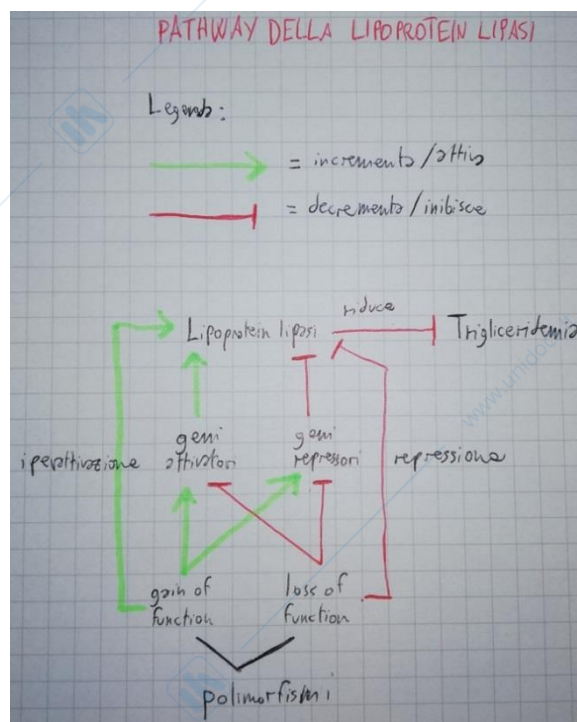 PATHWAY DELLA LIPOPROTEIN LIPASI
Legenda:
= incrementa/attiva
= decrementa/inibisce
riduce
Lipoprotein lipasi
Trigliceridemia
geni
attivatori
geni
repressori
iperattivazione
repressione
gain of
function
loss of
function
polimorfismi